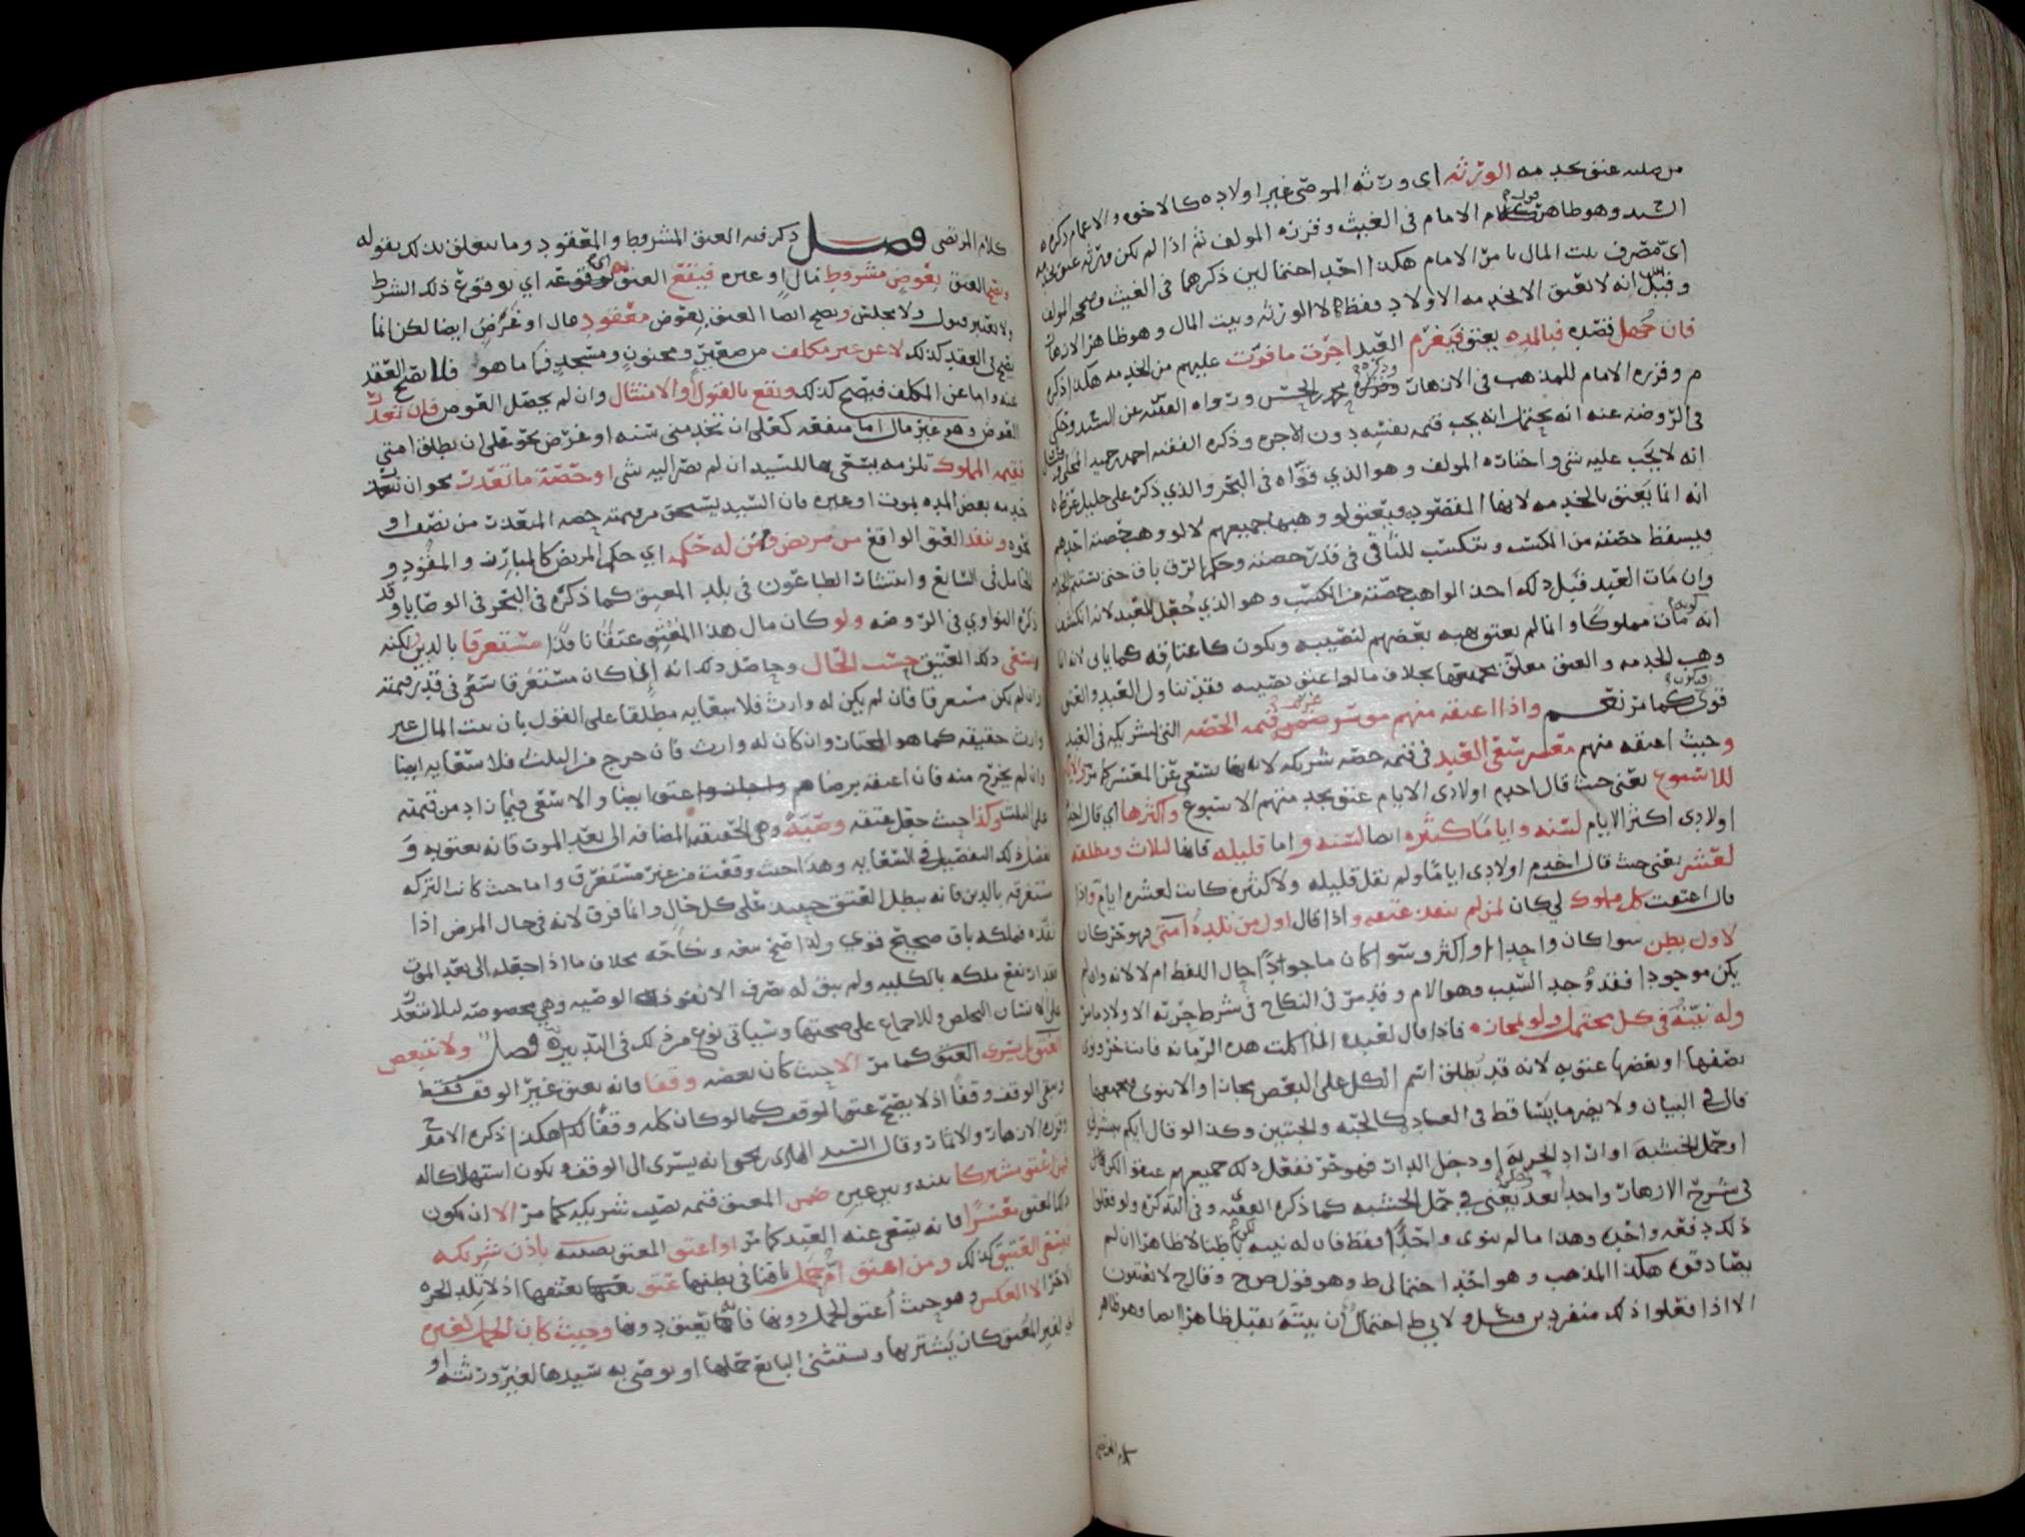 عتق بخدمه الورثه اى ورثه الموصى غير اولاده كالاخوه والاعمام ذكره
السيد وهو ظاهر كلام الامام فى الغيث وقرره المولف ثم اذا لم يكن ورثه عتق
اى مصرف بيت المال بامر الامام هكذا احد احتمالين ذكرهما فى الغيث وصححه المولف
وقيل انه لا يعتق الا بخدمه الاولاد فقط لا الورثه وبيت المال وهو ظاهر الازهار
فان جهل قصده فبالمده يعتق فيغرم العبد اجرة ما فوت عليهم من الخدمه هكذا ذكره
م وقرره الامام للمذهب فى الازهار ورواه الفقيه عن السيد وحكى
فى الروضه عنه انه يحتمل انه يجب قيمه نفسه دون الاجره وذكره الفقيه احمد حميد المحلى
انه لا يجب عليه شى واختاره المولف وهو الذي قواه فى البحر والذي ذكره على خليل
انه انما يعتق بالخدمه لانها المقصود فيعتق لو وهبها جميعهم لا لو وهب حصته احدهم
فيسقط حصته من الكسب ويتكسب للباقى فى قدر حصته وحكم الرق باق حتى تستتم
وان مات العبد قبل ذلك اخذ الواهب حصته من الكسب وهو الذي جعل للعبد لانه انكشف
انه مات مملوكا وانما لم يعتق بهبه بعضهم لنصيبه ويكون كاعتاقه كما ياتى لانه انما
وهب الخدمه والعتق معلق بجميعها بخلاف ما لو اعتق نصيبه فقد تناول العبد والعتق
قوى كما مر نعم واذا اعتقه منهم موسر غرم قيمه الحصه التى لشريكه فى العبد
وحيث اعتقه منهم معسر سعى العبد فى قيمه حصه شريكه لانه يسعى عن المعسر كما مر والايام
للاسبوع يعنى حيث قال اخدم اولادى الايام عتق بخدمتهم الاسبوع واكثرها اي قال اخدم
اولادى اكثر الايام لسنه واياما كثيره ايضا لسنه واما قليله فانها لثلاث ومطلقه
لعشر يعنى حيث قال اخدم اولادى اياما ولم يقل قليله ولا كثيره كانت لعشره ايام واذا
قال اعتقت كل مملوك لي كان لمن لم ينفذ عتقه واذا قال اول من تلده امتى فهو حر كان
لاول بطن سوا كان واحدا او اكثر وسوا كان ماجوادا حال اللفظ ام لا لانه وان لم
يكن موجودا فقد وجد السبب وهو الام وقد مر فى النكاح فى شرط حريه الاولاد ما مر
وله نيته فى كل محتمل ولو لمجازه فاذا قال لعبده ان اكلت هذه الرمانه فانت حر ونوى
نصفها او بعضها عتق به لانه قد يطلق اسم الكل على البعض مجازا والا ينوى فجميعها
قال في البيان ولا يضر ما يتساقط فى العباد كالحبه والحبتين وكذا لو قال ايكم
او حمل الخشبه او اراد الحربه او دخل الدار فهو حر ففعل ذلك جميعهم عتقوا الكل قال
فى شرح الازهار واحدا بعد واحد يعنى في حمل الخشبه كما ذكره الفقيه وفى التذكره ولو فعلوا
ذلك دفعه واحده وهذا ما لم ينوى واحدا فقط فان له نيته باطنا لا ظاهرا ان لم
يصادقوه هكذا المذهب وهو احد احتمالى ط وهو قول وقال ح لا يعتقون
الا اذا فعلوا ذلك منفردين ولابي ط احتمال ان بيته يقبل ظاهرا ايضا وهو ظاهر
كلام المرتضى
كلام المرتضى فصل ذكر فيه العتق المشروط والمعقود وما يتعلق بذلك بقوله
ويصح العتق بعوض مشروط مال او غيره فيقع العتق به اى بوقوع ذلك الشرط
ولا يعتبر قبول ولا مجلس ويصح ايضا العتق بعوض معقود مال او غرض ايضا لكن انما
يصح فى العقد كذلك لا عن غير مكلف من صغير ومجنون ومسجد فكما هو فلا يصح العقد
عنه واما عن المكلف فيصح كذلك ويقع بالقبول او الامتثال وان لم يحصل العوض فان تعذر
العوض وهو غير مال اما منفعه كعلى ان تخدمنى سنه او غرض نحو على ان تطلق امتى
فقيمه المملوك تلزمه يسعى بها للسيد ان لم يصر اليه شى او حصه ما تعذر نحو ان
خدمه بعض المده بموت او غيره فان السيد يستحق من قيمته حصه المتعذر من نصف او
نحوه وينفذ العتق الواقع من مريض ومن له حكمه اي حكم المريض كالمبارز والمقود و
الحامل فى السابع وانتشار الطاعون فى بلد المعتق كما ذكره فى البحر فى الوصايا وقد
ذكره النواوي فى الروضه ولو كان مال هذا المعتق عتقا نافذا مستغرقا بالدين لكنه
يسعى ذلك العتيق حسب الحال وحاصل ذلك انه ان كان مستغرقا سعى فى قدر قيمته
وان لم يكن مستغرقا فان لم يكن له وارث فلا سعايه مطلقا على القول بان بيت المال غير
وارث حقيقه كما هو المختار وان كان له وارث فان خرج من الثلث فلا سعايه ايضا
وان لم يخرج منه فان اعتقه برضاهم عتق ايضا والا سعى فيما زاد من قيمته
على الثلث وكذا حيث جعل عتقه وصيه وهى الحقيقه المضافه الى بعد الموت فانه يعتق به و
مثل ذلك التفصيل فى السعايه وهذا حيث وقعت من غير مستغرق واما حيث كانت التركه
مستغرقه بالدين فانه يبطل العتق حينئذ على كل حال وانما فرق لانه فى حال المرض اذا
نفذه فملكه باق صحيح قوي ولذا صح بيعه ونكاحه بخلاف ما اذا جعله الى بعد الموت
فقد ارتفع ملكه بالكليه ولم يبق له تصرف الا نفوذ الوصيه وهي مخصوصه لئلا يتعذر
على الانسان التخلص وللاجماع على صحتها وسياتى نوع من ذلك فى التدبير فصل ولا يتبعض
العتق بل يسرى العتق كما مر الا حيث كان بعضه وقفا فانه يعتق غير الوقف فقط
ويبقى الوقف وقفا اذ لا يصح عتق الوقف كما لو كان كله وقفا هكذا ذكره الامام
وقرره الازهار والاثمار وقال السيد الهادى يحيى انه يسرى الى الوقف ويكون استهلاكا له
فمن اعتق مشتركا بينه وبين غيره ضمن المعتق قيمه نصيب شريكه كما مر الا ان يكون
ذلك المعتق معسرا فانه يسعى عنه العبد كما مر او اعتق المعتق نصيبه باذن شريكه
فيسعى العتيق كذلك ومن اعتق ام حمل باقيا فى بطنها عتق بعتقها اذ لا تلد الحره
الا حرا لا العكس وهو حيث اعتق الحمل دونها فانه يعتق دونها وحيث كان الحمل لغيره
اي لغير المعتق كان يشتريها ويستثنى البايع حملها او يوصى به سيدها لغير ورثته او